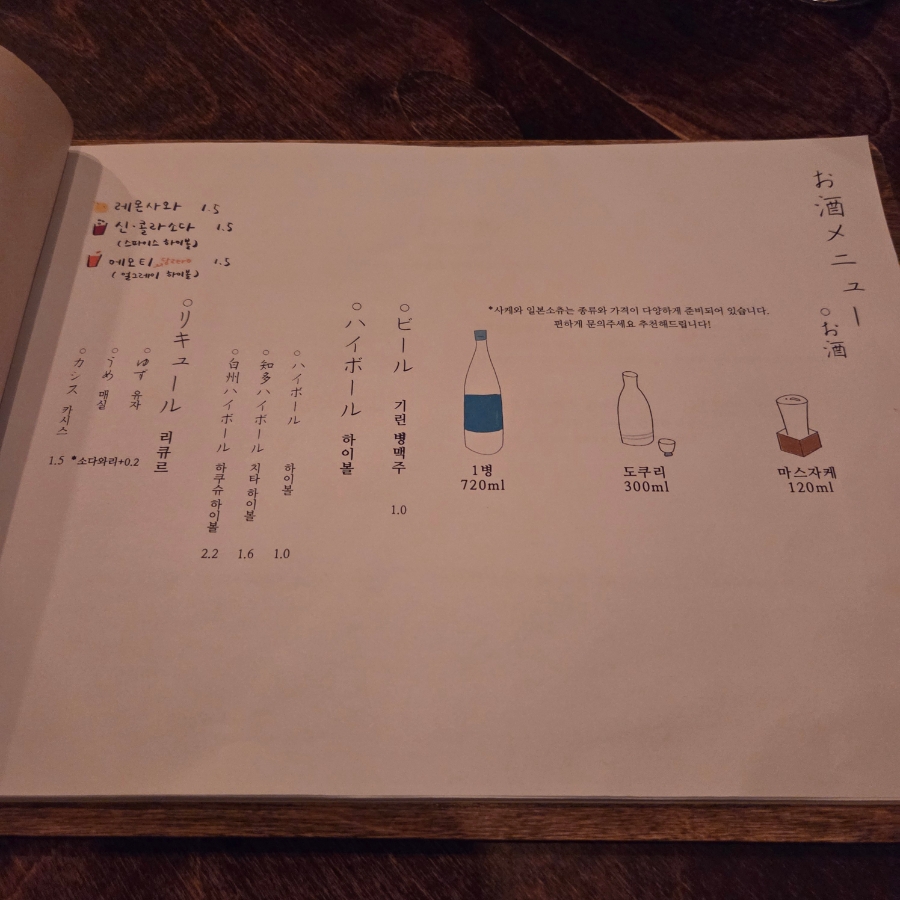 お酒メニュー
○お酒
*사케와 일본소츄는 종류와 가격이 다양하게 준비되어 있습니다.
편하게 문의주세요 추천해드립니다!
마스자케
120ml
도쿠리
300ml
1병
720ml
○ビール 기린 병맥주 1.0
○ハイボール 하이볼
○ハイボール 하이볼 1.0
○知多ハイボール 지타 하이볼 1.6
○白州ハイボール 하쿠슈 하이볼 2.2
○リキュール 리큐르
○ゆず 유자
○うめ 매실
○カシス 카시스
1.5 *소다와리+0.2
레몬사와 1.5
신·콜라소다 1.5
(스파이스 하이볼)
메오티 1.5
(얼그레이 하이볼)